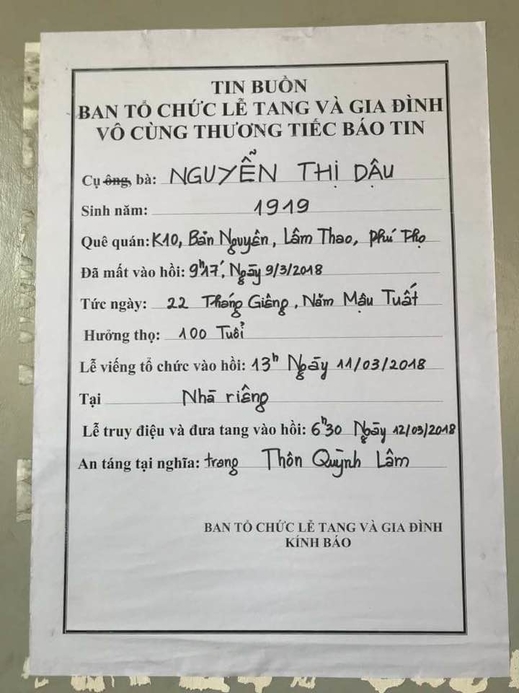 TIN BUỒN
BAN TỔ CHỨC LỄ TANG VÀ GIA ĐÌNH
VÔ CÙNG THƯƠNG TIẾC BÁO TIN
Cụ ông, bà: NGUYỂN THỊ DẬU
Sinh năm: 1919
Quê quán: K10, Bản Nguyên, Lâm Thao, Phú Thọ
Đã mất vào hồi: 9h17', Ngày 9/3/2018
Tức ngày: 22 Tháng Giêng, Năm Mậu Tuất
Hưởng thọ: 100 Tuổi
Lễ viếng tổ chức vào hồi: 13h Ngày 11/03/2018
Tại Nhà riêng
Lễ truy điệu và đưa tang vào hồi: 6h30 Ngày 12/03/2018
An táng tại nghĩa: trang Thôn Quỳnh Lâm
BAN TỔ CHỨC LỄ TANG VÀ GIA ĐÌNH
KÍNH BÁO